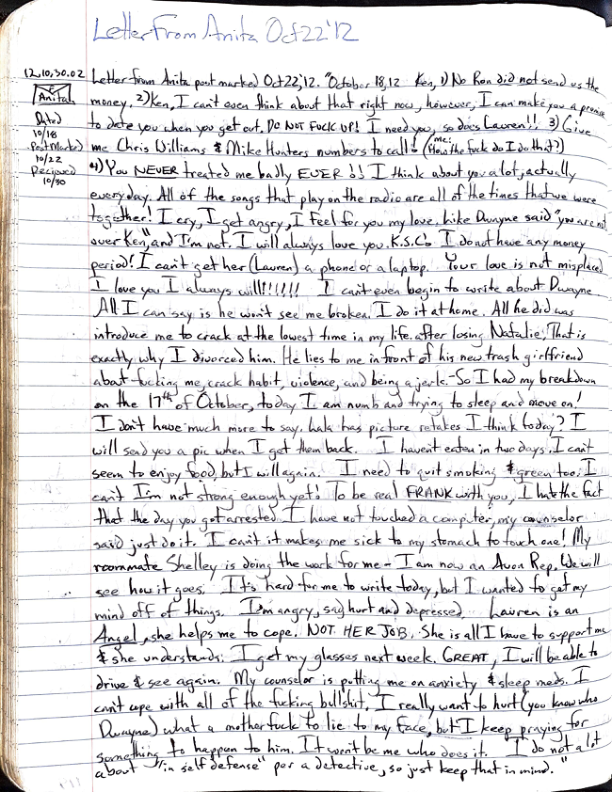 Letter From Anita Oct 22 '12
12.10.30.02
Anita
Dated
10/18
Postmarked
10/22
Recieved
10/30
Letter from Anita post marked Oct 22, '12. "October 18, 12 Ken, 1) No Ron did not send us the
money, 2) Ken, I can't even think about that right now, however, I can make you a promise
to date you when you get out. DO NOT FUCK UP! I need you, so does Lauren!! 3) Give
me Chris Williams & Mike Hunters numbers to call! (me: How the fuck do I do that?)
4) You NEVER treated me badly EVER!! I think about you a lot, actually
everyday. All of the songs that play on the radio are all of the times that we were
together! I cry, I get angry, I feel for you my love. Like Dwayne said "you are not
over Ken", and I'm not. I will always love you K.S.C. I do not have any money
period! I can't get her (Lauren) a phone or a laptop. Your love is not misplaced
I love you I always will!!!!!! I can't even begin to write about Dwayne.
All I can say is he won't see me broken. I do it at home. All he did was
introduce me to crack at the lowest time in my life, after losing Natalie. That is
exactly why I divorced him. He lies to me in front of his new trash girlfriend
about fucking me, crack habit, violence, and being a jerk. - So I had my breakdown
on the 17th of October, today I am numb and trying to sleep and move on!
I don't have much more to say. has picture retakes I think today? I
will send you a pic when I get them back. I havent eaten in two days. I can't
seem to enjoy food, but I will again. I need to quit smoking & green too; I
can't I'm not strong enough yet! To be real FRANK with you, I hate the fact
that the day you got arrested I have not touched a computer, my counselor
said just do it. I can't it makes me sick to my stomach to touch one! My
roommate Shelley is doing the work for me - I am now an Avon Rep. We will
see how it goes. It's hard for me to write today, but I wanted to get my
mind off of things. I'm angry, sad, hurt and depressed. Lauren is an
Angel, she helps me to cope. NOT HER JOB. She is all I have to support me
& she understands. I get my glasses next week. GREAT, I will be able to
drive & see again. My counselor is putting me on anxiety & sleep meds. I
can't cope with all of the fucking bullshit. I really want to hurt (you know who
Dwayne) what a motherfuck to lie to my face, but I keep praying for
something to happen to him. It won't be me who does it. I do not a lot
about "in self defense" per a detective, so just keep that in mind."